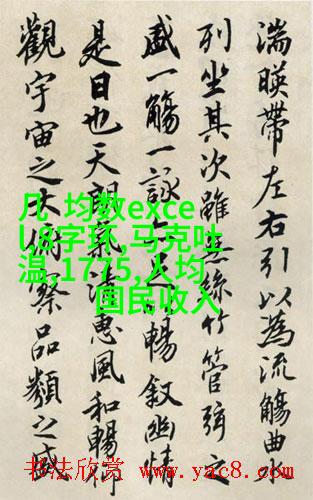 湍暎帶左右引以為流觴曲
列坐其次雖無絲竹管弦之
盛一觴一詠亦足暢敘幽情
是日也天朗氣清惠風和暢仰
觀宇宙之大察品類之盛
几 均数exce
l,8字环,马克吐
温,1775,人均
国民收入
书法欣赏 www.yac8.com